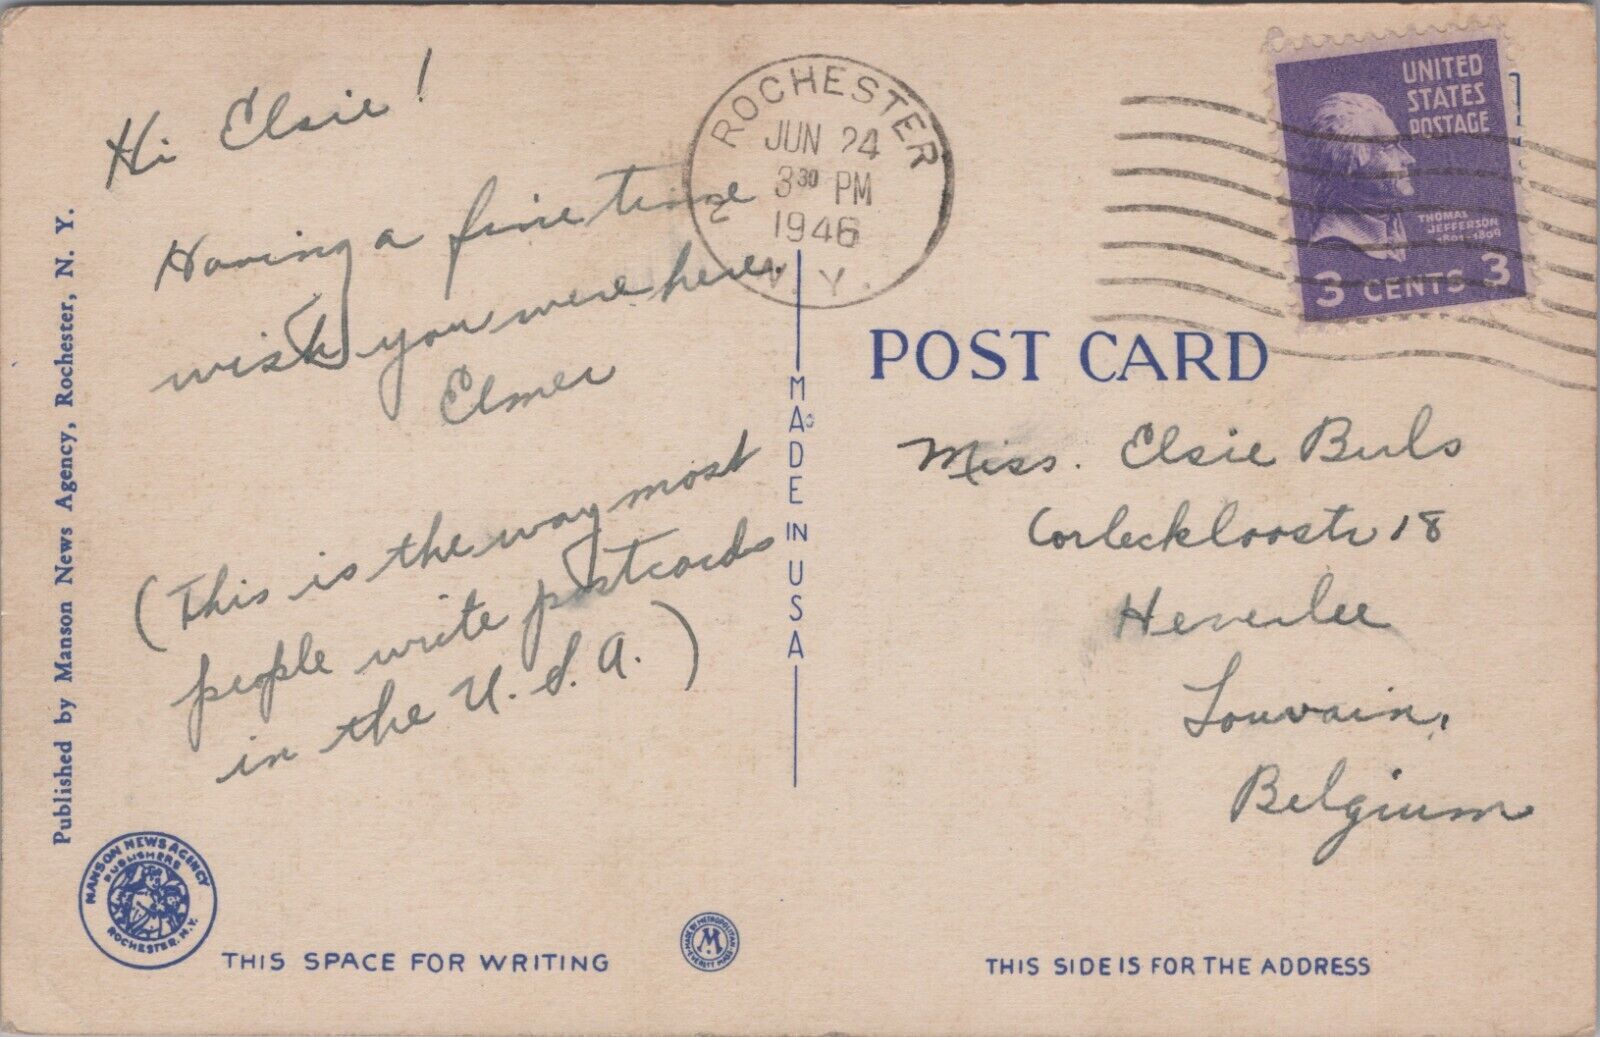 Hi Elsie!
Having a fine time
wish you were here.
Elmer
(This is the way most
people write postcards
in the U.S.A.)
Published by Manson News Agency, Rochester, N. Y.
MANSON NEWS AGENCY
PUBLISHERS
ROCHESTER, N.Y.
THIS SPACE FOR WRITING
MADE BY METROPOLITAN
M
EVERETT MASS.
MADE IN USA
ROCHESTER
JUN 24
3 30 PM
1946
N. Y.
UNITED
STATES
POSTAGE
THOMAS
JEFFERSON
1801-1809
3 CENTS 3
POST CARD
Miss. Elsie Buls
18
Heverlee
Louvain,
Belgium
THIS SIDE IS FOR THE ADDRESS